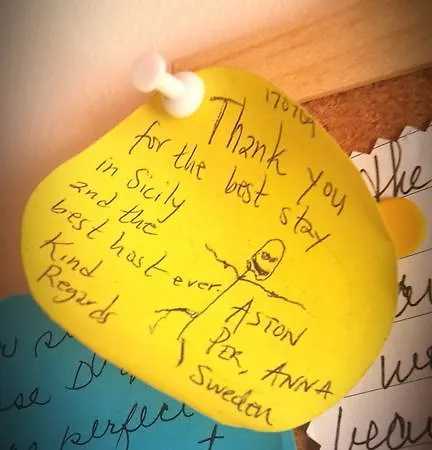 170709
Thank you
for the best stay
in Sicily
and the
best host ever.
Kind
Regards
ASTON
PER, ANNA
Sweden
the
se
perfect